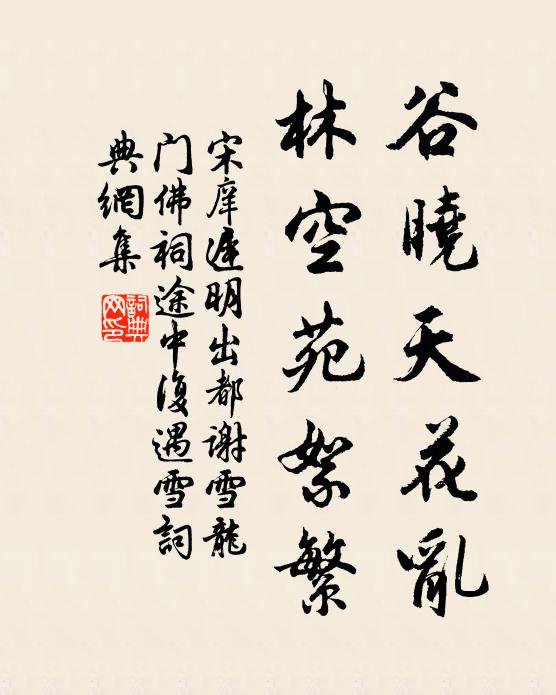 谷曉天花亂
林空苑絮繁
宋庠遲明出都謝雪龍
门佛祠途中復遇雪詞
典網集
詞典
网印